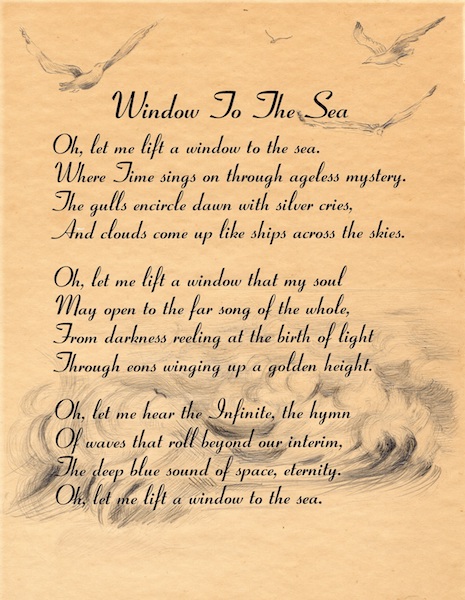 Window To The Sea
Oh, let me lift a window to the sea.
Where Time sings on through ageless mystery.
The gulls encircle dawn with silver cries,
And clouds come up like ships across the skies.
Oh, let me lift a window that my soul
May open to the far song of the whole,
From darkness reeling at the birth of light
Through eons winging up a golden height.
Oh, let me hear the Infinite, the hymn
Of waves that roll beyond our interim,
The deep blue sound of space, eternity.
Oh, let me lift a window to the sea.